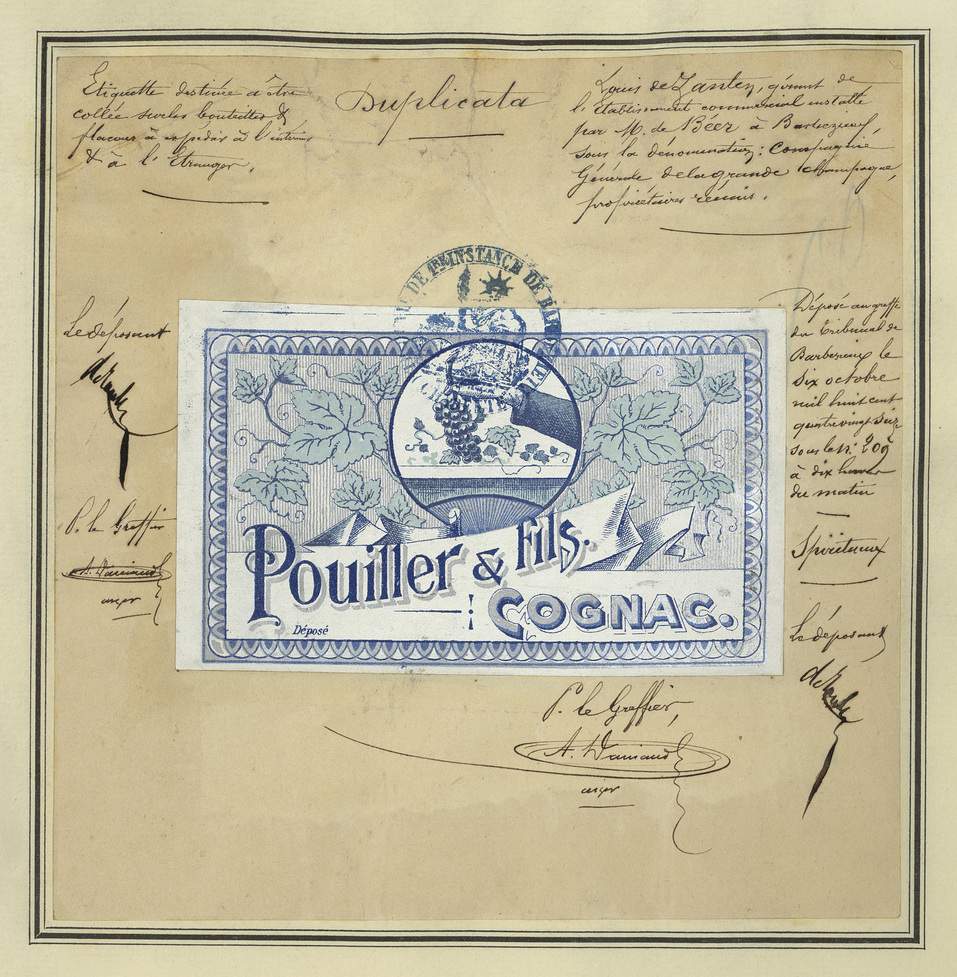 Etiquette destinée à être
collée sur les bouteilles &
flacons à expédier à l'intérieur
& à l'Etranger.
Duplicata
Louis de gérant de
l'Etablissement commercial installé
par M. de Béer à Barbezieux,
sous la dénomination: Compagnie
Générale de la grande Champagne,
propriétaires réunis.
DE 1RE INSTANCE DE BAR
Le déposant
P. le Greffier
Pouiller & Fils.
Cognac.
Déposé
Déposé au greffe
du Tribunal de
Barbezieux le
six octobre
mil huit cent
quatre vingt six
sous le N: 209
à dix heures
du matin
Spiritueux
Le déposant
P. le Greffier,